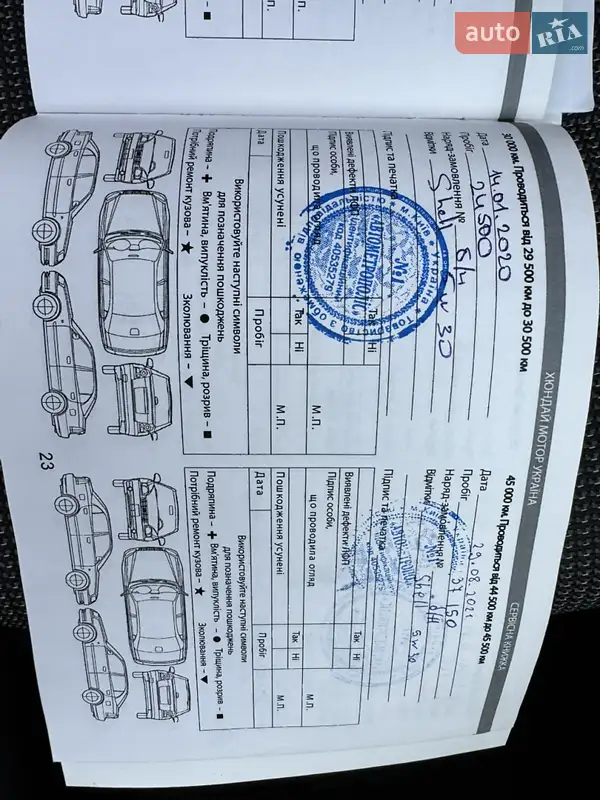 auto RIA .com
ХЮНДАЙ МОТОР УКРАЇНА
СЕРВІСНА КНИЖКА
30 000 км. Проводиться від 29 500 км до 30 500 км
Дата 14.01.2020
Пробіг 24500
Наряд-замовлення №
Відмітки Shell 5W30
Підпис та печатка
Виявлені дефекти ЛФП
Так
Ні
Підпис особи,
що проводила огляд
М.П.
Пошкодження усунені
Так
Ні
М.П.
Дата
Пробіг
Використовуйте наступні символи
для позначення пошкоджень
Подряпина – + Вм'ятина, випуклість – ● Тріщина, розрив – ■
Потрібний ремонт кузова – ★ Зколювання – ▼
45 000 км. Проводиться від 44 500 км до 45 500 км
Дата 29.08.2021
Пробіг 37 150
Наряд-замовлення №
Відмітки 5W30
Підпис та печатка
Виявлені дефекти ЛФП
Так
Ні
Підпис особи,
що проводила огляд
М.П.
Пошкодження усунені
Так
Ні
М.П.
Дата
Пробіг
Використовуйте наступні символи
для позначення пошкоджень
Подряпина – + Вм'ятина, випуклість – ● Тріщина, розрив – ■
Потрібний ремонт кузова – ★ Зколювання – ▼
23